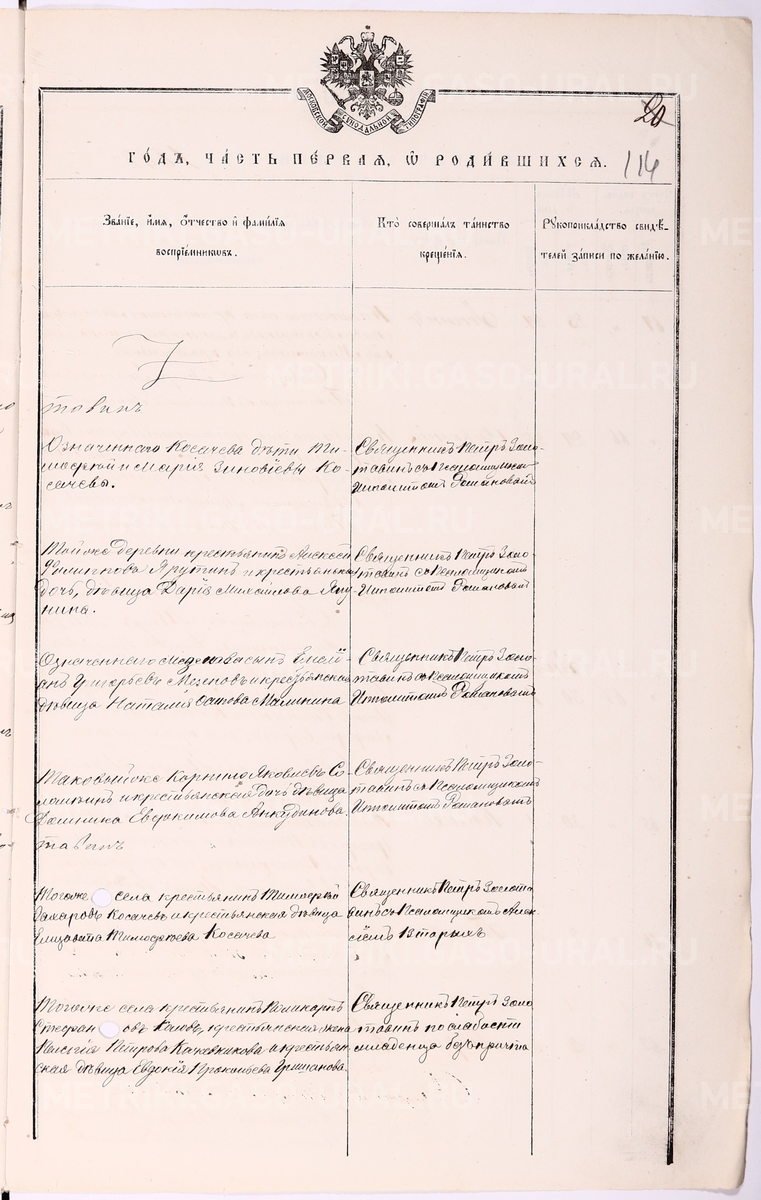 МОСКОВСКОЙ СѴНОДАЛЬНОЙ ТИПОГРАФІИ
20
ГОДЪ, ЧАСТЬ ПЕРВАЯ, Ѡ РОДИВШИХСЯ.
114
Званіе, имя, отчество и фамилія
воспріемниковъ.
Кто совершалъ таинство
крещенія.
Рукоприкладство свидѣ-
телей записи по желанію.
тавинъ
Означеннаго Косачева дѣти Ти-
мофей и Марія Зиновіевы Ко-
сачевы.
Священникъ Петръ Золо-
тавинъ съ Псаломщикомъ
Ипполитомъ Романовымъ
Тойже деревни крестьянинъ Алексѣй
Филиповъ Ярутинъ и крестьянская
дочь, дѣвица Дарія Михайлова Яру-
нина.
Священникъ Петръ Золо-
тавинъ съ Псаломщикомъ
Ипполитомъ Романовымъ
Означеннаго Мезенова сынъ Емелі-
анъ Григорьевъ Мезеновъ и крестьянская
дѣвица Наталія Малинина
Священникъ Петръ Золо-
тавинъ съ Псаломщикомъ
Ипполитомъ Романовымъ
Таковыйже Корнило Яковлевъ Со-
ломеинъ и крестьянская дочь дѣвица
Евдокимова Анкудинова.
Священникъ Петръ Золо-
тавинъ съ Псаломщикомъ
Ипполитомъ Романовымъ
тавинъ
Тогоже села крестьянинъ Тимофей
Захаровъ Косачевъ и крестьянская дѣвица
Елизавета Тимофеева Косачева
Священникъ Петръ Золота
винъ съ Псаломщикомъ Алек-
сѣемъ Вторыхъ
Тогоже села крестьянинъ
Стефановъ крестьянская жена
Пелагія Петрова Кожевникова и крестьян
ская дѣвица Евдокія Прокопьева Гришанова.
Священникъ Петръ Золо
тавинъ по слабости
младенца безъ причта
METRIKI.GASO-URAL.RU